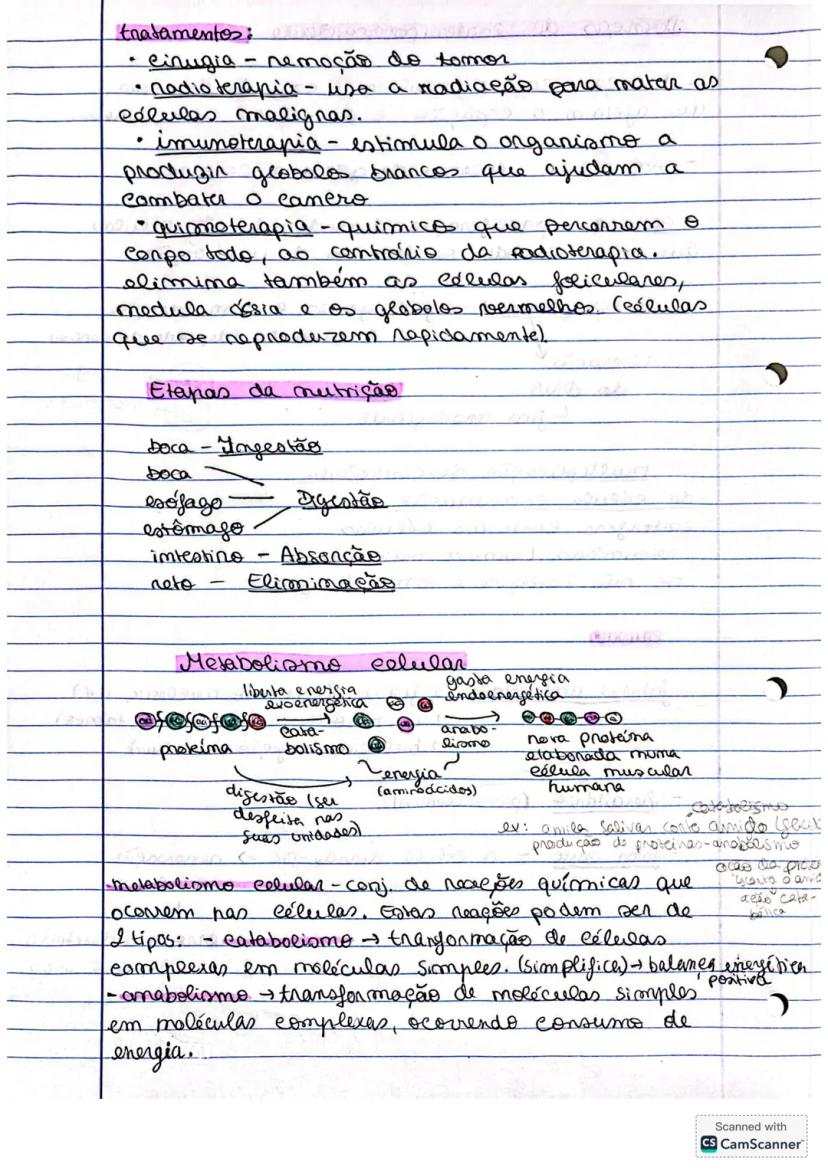 tratamentos:
• cirugia - remoção do tomor
• radioterapia - usa a radiação para matar as
células malignas.
• imunoterapia - estimula o organismo a
produzir globolos brancos que ajudam a
combater o cancro
• quimoterapia - químicos que percorrem o
corpo todo, ao contrário da radioterapia.
elimina também as células foliculares,
medula óssia e os globolos vermelhos. (células
que se reproduzem rapidamente)
Etapas da nutrição
boca - Ingestão
boca
esófago Digestão
estômago
intestino - Absorção
reto - Eliminação
Metabolismo celular
liberta energia
exoenergética
gasta energia
endoenergética
proteína
cata-
bolismo
anabo-
lismo
energia
(aminoácidos)
nova proteína
elaborada numa
célula muscular
humana
digestão (ser
desfeita nas
suas unidades)
catabolismo
ex: amila salivar corta amido
produção de proteínas - anabolismo
ação da
ação cata-
bólica
metabolismo celular - conj. de reações químicas que
ocorrem nas células. Estas reações podem ser de
2 tipos: - catabolismo → tranformação de células
complexas em moléculas simples. (simplifica) → balança energética
positiva
- anabolismo → transformação de moléculas simples
em moléculas complexas, ocorrendo consumo de
energia.
Scanned with
CS CamScanner